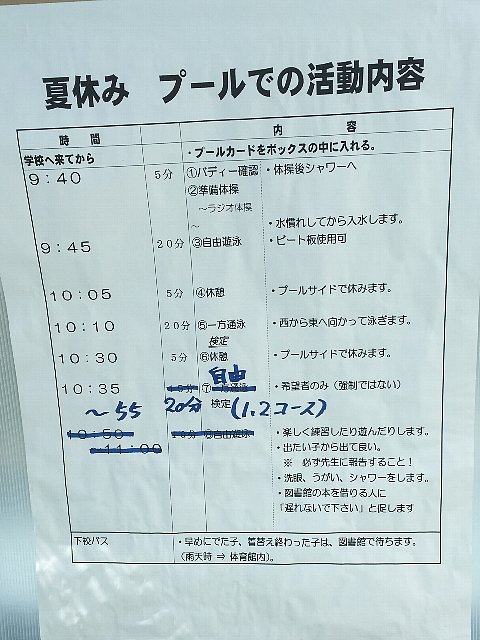 夏休み　プールでの活動内容
時　間　内　容
学校へ来てから　・プールカードをボックスの中に入れる。
9：40　5分　①バディー確認　・体操後シャワーへ
②準備体操
～ラジオ体操
～　・水慣れしてから入水します。
9：45　20分　③自由遊泳　・ビート板使用可
10：05　5分　④休憩　・プールサイドで休みます。
10：10　20分　⑤一方通泳　・西から東へ向かって泳ぎます。
検定
10：30　5分　⑥休憩　・プールサイドで休みます。
自由
10：35　15分　⑦一方通泳　・希望者のみ（強制ではない）
～55　20分　検定　(1,2コース)
10：50　10分　⑧自由遊泳　・楽しく練習したり遊んだりします。
～11：00　・出たい子から出て良い。
※　必ず先生に報告すること！
・洗眼、うがい、シャワーをします。
・図書館の本を借りる人に
「遅れないで下さい」と促します
下校バス　・早めにでた子、着替え終わった子は、図書館で待ちます。
（雨天時 ⇒ 体育館内）。